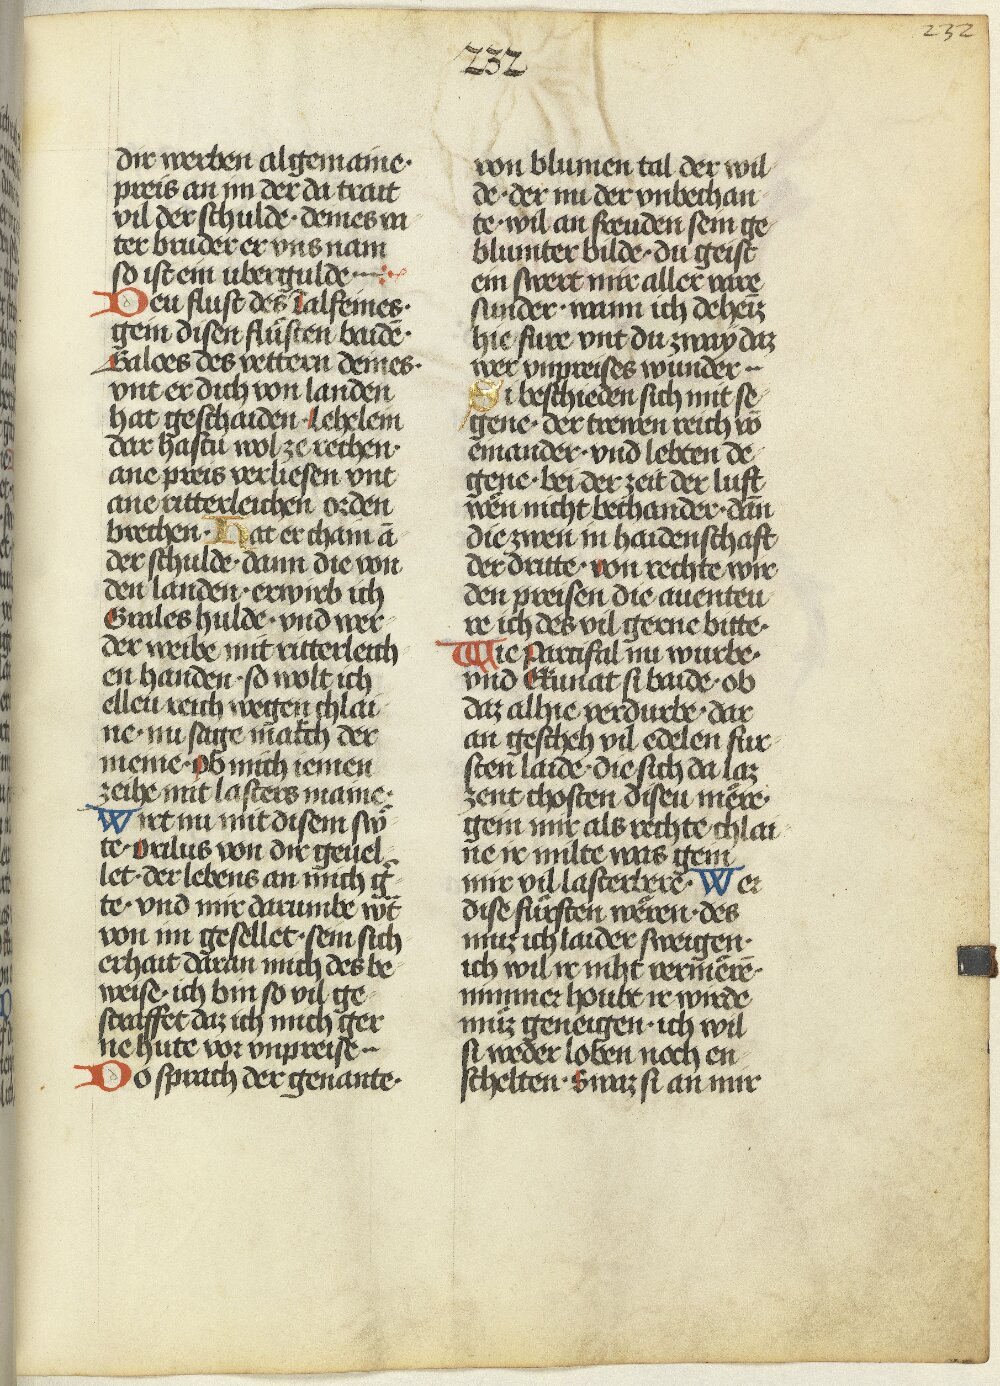 232
232
dir werben algemaine·
preis an im der da trait
vil der schulde· deines va
ter bruder er vns nam
so ist ein ubergulde
Deu flust des Talfeines·
gein disen flüsten baidē·
Galoes des vettern deines·
vnt er dich von landen
hat geschaiden· Lehelein
dar hastu wol ze rechen·
ane preis verliesen vnt
ane ritterleichen orden
brechen· Hat er chain ā
der schulde· dann die von
den landen· erwirb ich
Grales hulde· vnd wer
der weibe mit ritterleich
en handen· so wolt ich
elleu reich wegen chlai
ne· nu sage der
meine· ob mich iemen
zeihe mit lasters maine·
Wirt nu mit disem sw
te· Orilus von dir geuel
let· der lebens an mich g
te· vnd mir darumbe
von im gesellet· sein sich
erhait daran mich des be
weise· ich bin so vil ge
straffet daz ich mich ger
ne hute vor vnpreise
Do sprach der genante·
von blumen tal der wil
de· der nu der vnbechan
te· wil an freuden sein ge
blumter bilde· du geist
ein swert mir aller ware
sunder· wann ich deheiz
hie fure vnt du zway daz
wer vnpreises wunder
Si beschieden sich mit se
gene· der trewen reich vō
einander· vnd lebten de
gene· bei der zeit der luft
wen nicht bechander· dañ
die zwen in haidenschaft
der dritte· von rechte wir
den preisen die auenteu
re ich des vil gerne bitte·
Wie Parcifal nu wurbe·
vnd Ekunat si baide· ob
daz alhie verdurbe· dar
an gescheh vil edelen fur
sten laide· die sich da laz
zent chosten diseu mere·
gein mir als rechte chlai
ne ir milte was gein
mir vil lasterbere· Wer
dise fürsten weren· des
muz ich laider sweigen·
ich wil ir niht vermerē·
nimmer houbt ir wirde
müz geneigen· ich wil
si weder loben noch en
schelten· Swaz si an mir